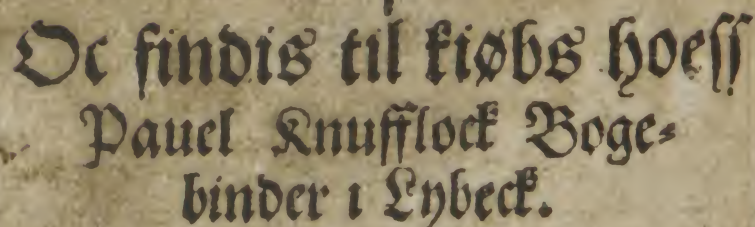 Oc findis til kiøbs hoeſſ
Pauel Knufflock Boge⸗
binder i Lybeck.